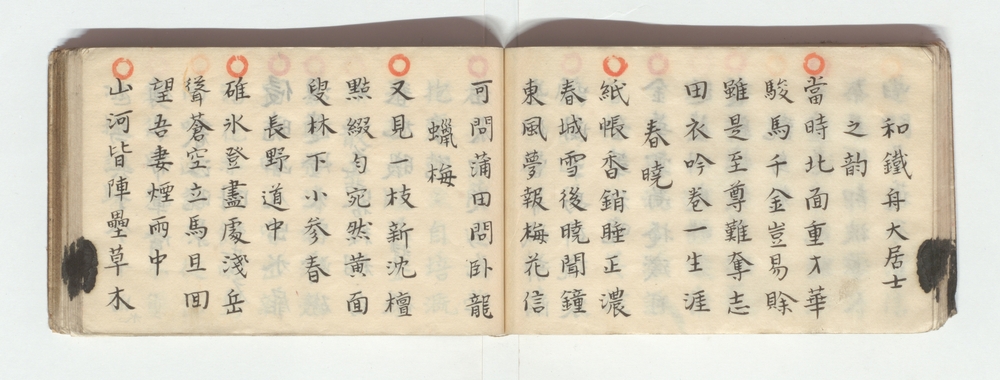 和鐵舟大居士
之韵
當時北面重才華
駿馬千金豈易賖
雖是至尊難奪志
田衣吟卷一生涯
春曉
紙帳香銷睡正濃
春城雪後曉聞鐘
東風夢報梅花信
可問蒲田問臥龍
蠟梅
又見一枝新沈檀
點綴勻宛然黄面
叟林下小參春
長野道中
碓氷登盡處淺岳
聳蒼空立馬且回
望吾妻煙雨中
山河皆陣壘草木